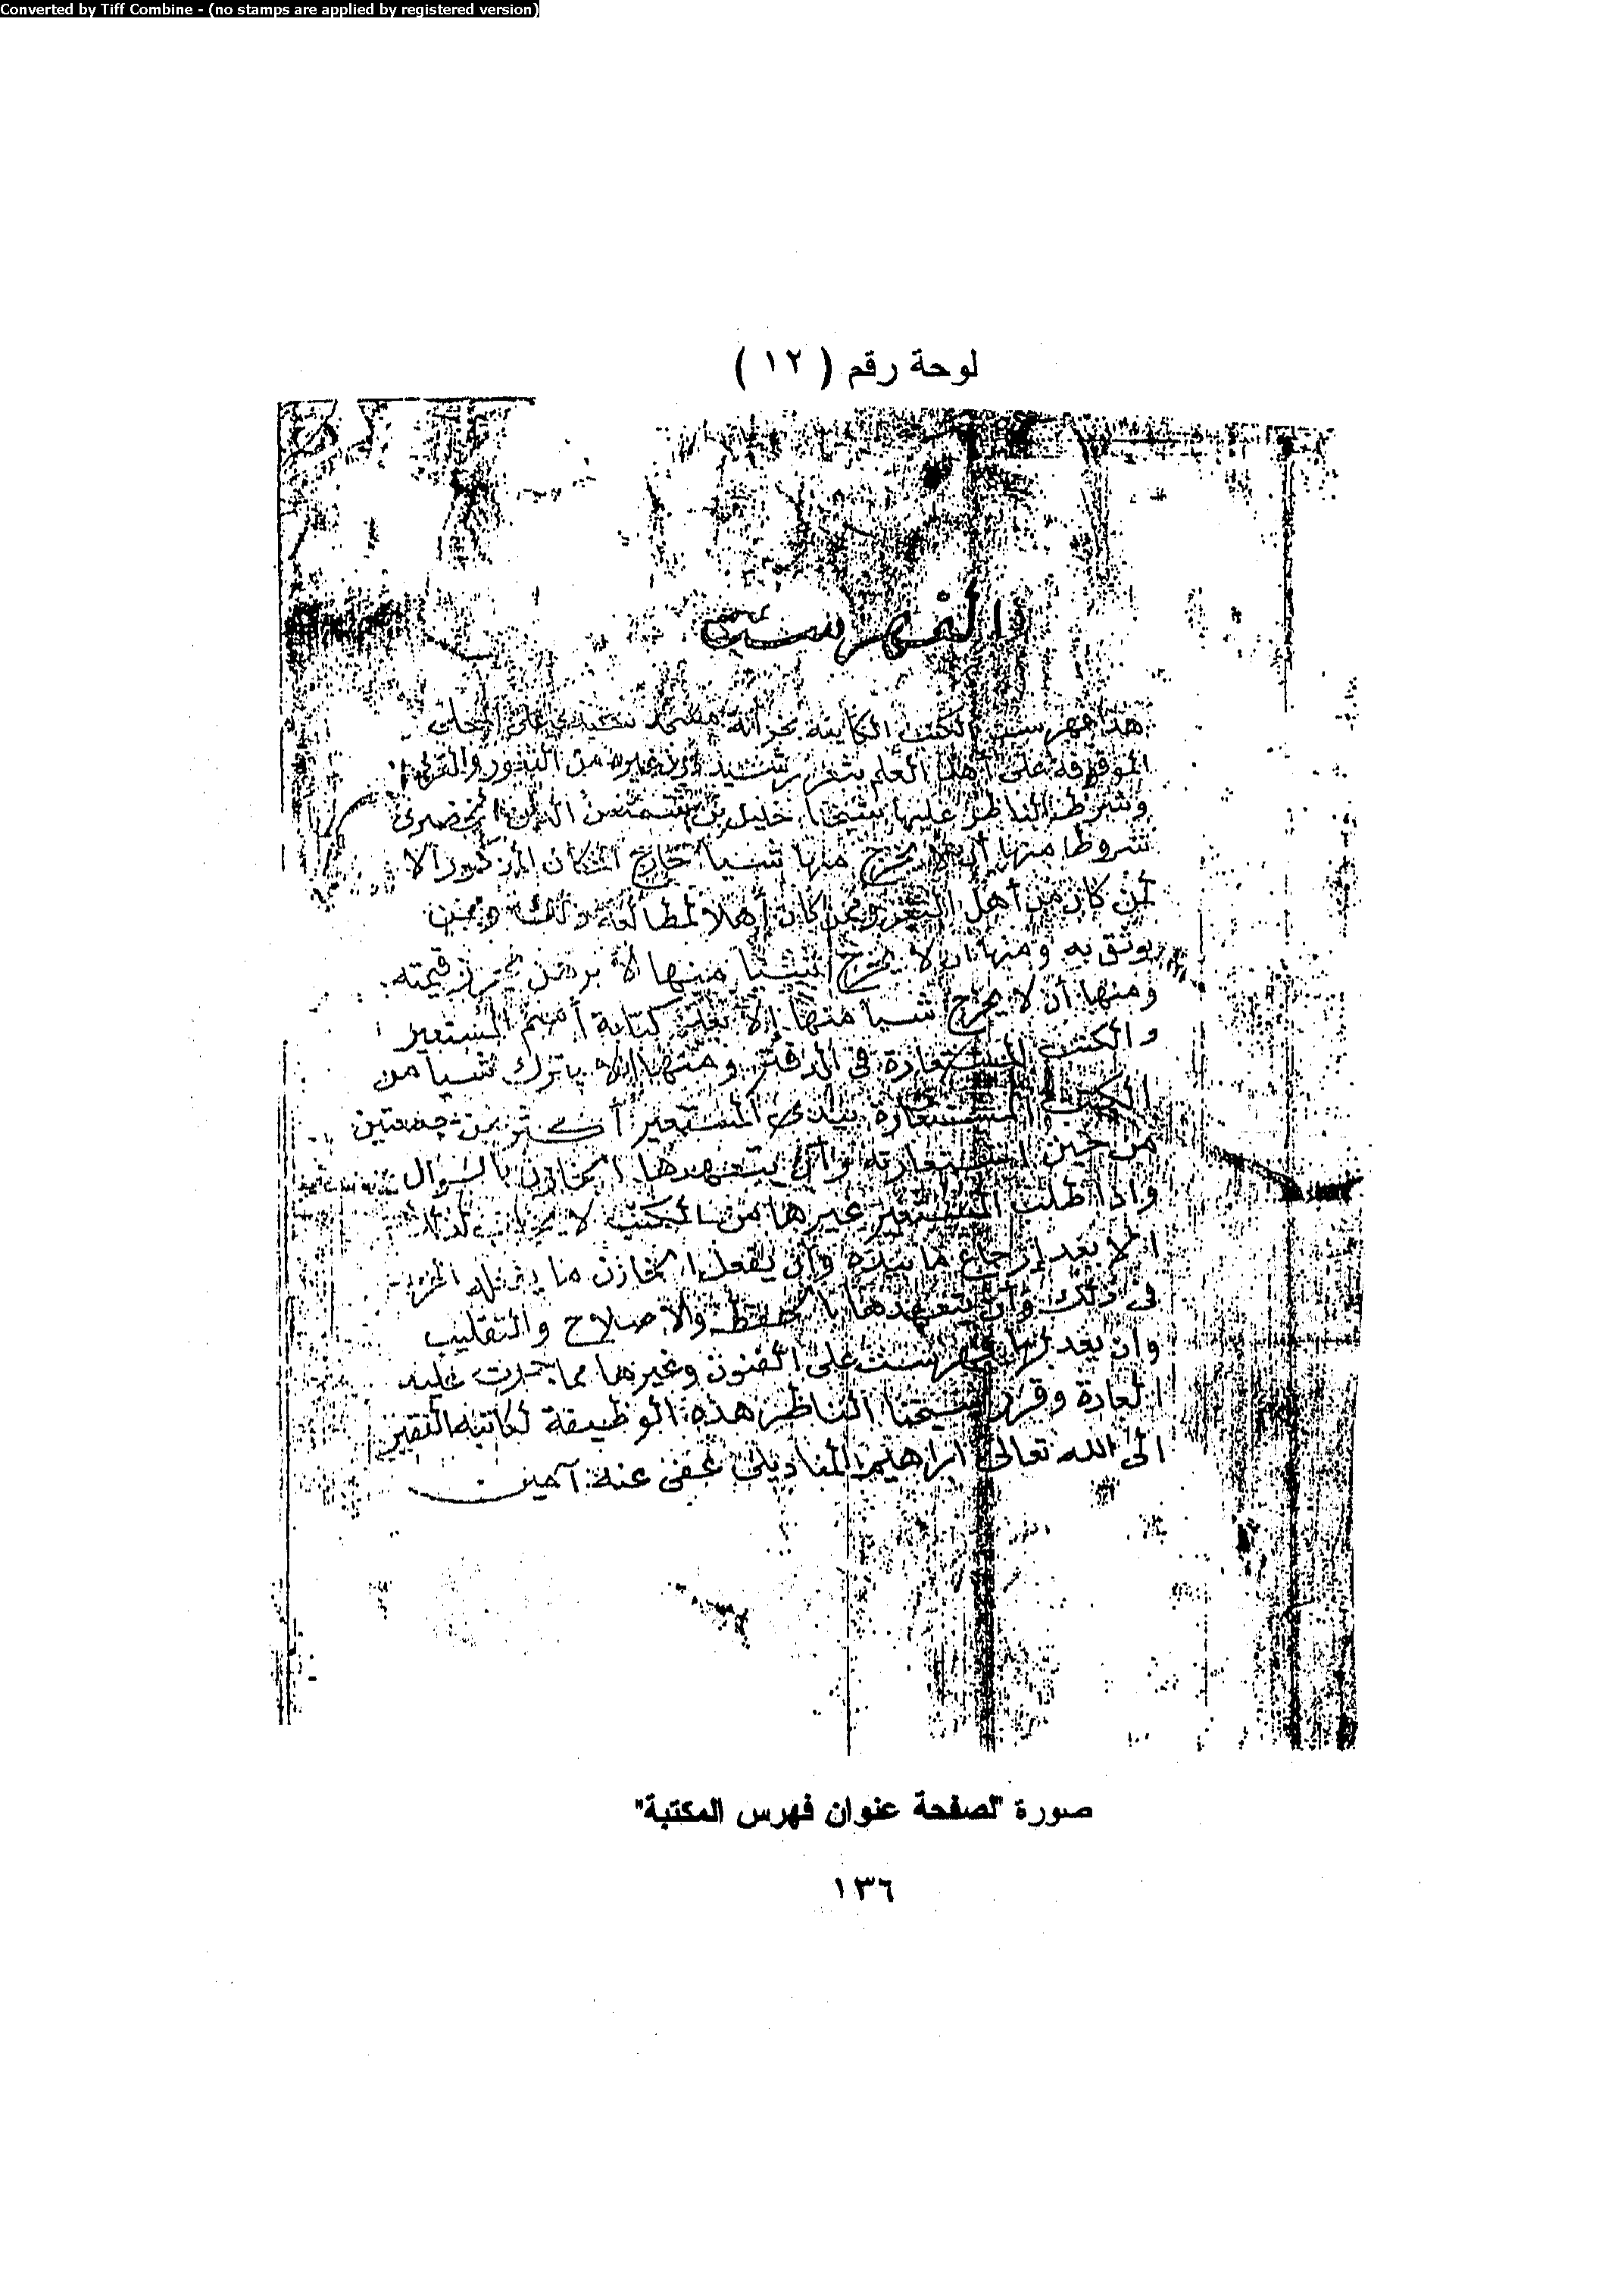 Converted by Tiff Combine - (no stamps are applied by registered version)
لوحة رقم ( ١٢ )
الفهرست
هذا فهرست الكتب الكاينة بخزانة على المحلى
الموقوفة على أهل العلم بثغر رشيد دون غيره من الثغور والقرى
وشرط الناظر عليها شيخنا خليل بن شمس الدين الخضرى
شروطا منها أن لا يخرج منها شيا خارج المكان المذكور الا
لمن كان من أهل الثغر وممن كان أهلا لمطالعة ذلك وممن
يوثق به ومنها ان لا يخرج شيا منها الا برهن يحرز قيمته
ومنها أن لا يخرج شيا منها إلا بعد كتابة أسم المستعير
والكتب المستعارة فى الدفتر ومنها ان لا يترك شيا من
الكتب المستعارة بيدى المستعير أكثر من جمعتين
من حين استعارته وأن يتعهدها الخازن بالسوال
واذا طلب المستعير غيرها من الكتب لا لذلك
الا بعد إرجاع ما بيده وأن يفعل الخازن ما
فى ذلك وأن يتعهدها بالحفظ والاصلاح والتقليب
وان يعد لها فهرست على الفنون وغيرها مما جرت عليه
العادة وقرر شيخنا الناظر هذه الوظيفة لكاتبه الفقير
الى الله تعالى ابراهيم المناديلى عفى عنه آمين
صورة "لصفحة عنوان فهرس المكتبة"
١٣٦